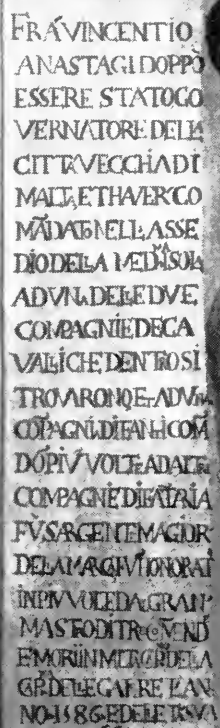 FRA VINCENTIO
ANASTAGI DOPPO
ESSERE STATO GO
VERNATORE DELLA
CITTA VECCHIA DI
MALTA ET HAVER CO
MĀDATO NELL ASSE
DIO DELLA MED.MA ISOLA
AD VNA DELLE DVE
COMPAGNIE DE CA
VALLI CHE DENTRO SI
TROVARONO ET AD VNA
COPAGNIA DI FANTI COM
DO PIV VOLTE AD ALTRE
COMPAGNIE DI FATARIA
FV SARGENTE MAGIOR
DELA
IN PIV VOLE DA GRAN
MASTRO DI TRE
E MORI IN DELA
GR DELLE GALERE L AN
NO 1586 E DELE TSVA